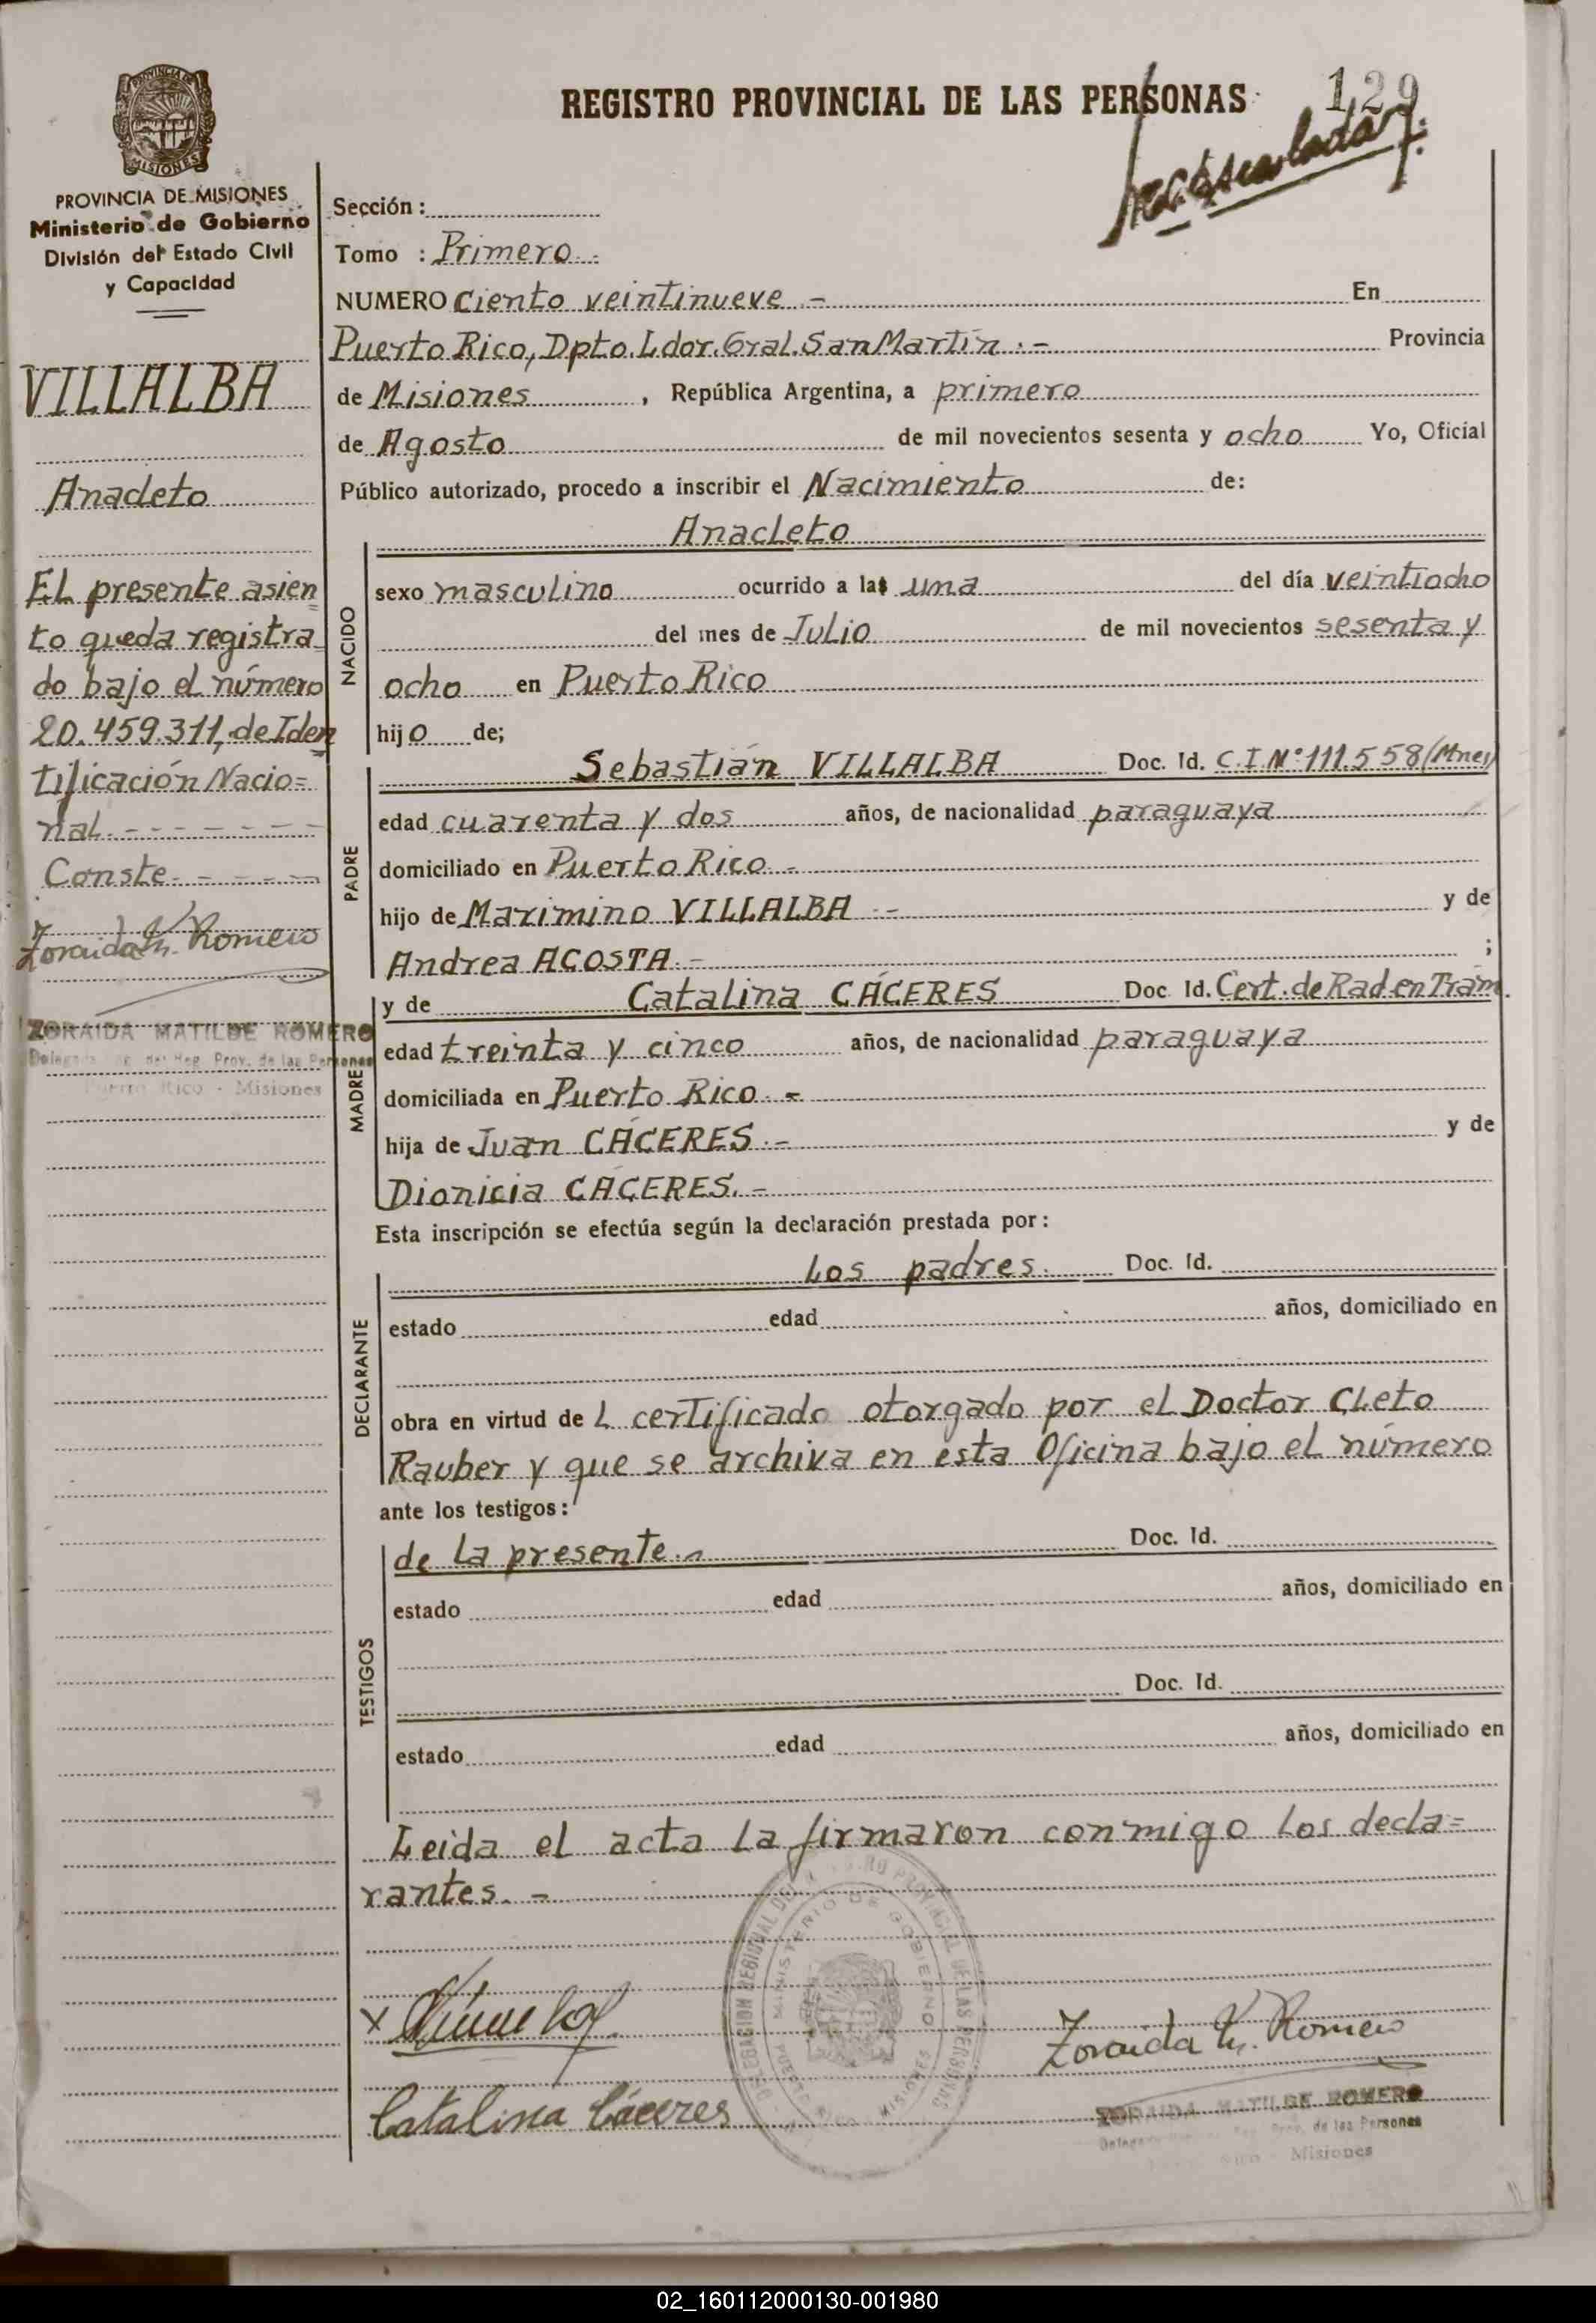 REGISTRO PROVINCIAL DE LAS PERSONAS
129
PROVINCIA DE MISIONES
MISIONES
PROVINCIA DE MISIONES
Ministerio de Gobierno
División del Estado Civil
y Capacidad
VILLALBA
Anacleto
El presente asien
to queda registra
do bajo el número
20.459.311, de Iden
tificación Nacio=
nal.- - - - - - -
Conste.- - - - -
Zoraida M. Romero
ZORAIDA MATILDE ROMERO
Reg. Prov. de las Personas
Puerto Rico - Misiones
Sección:
Tomo : Primero.-
NUMERO Ciento veintinueve.- En
Puerto Rico, Dpto. Ldor. Gral. San Martín.- Provincia
de Misiones , República Argentina, a primero
de Agosto de mil novecientos sesenta y ocho Yo, Oficial
Público autorizado, procedo a inscribir el Nacimiento de:
NACIDO
Anacleto
sexo masculino ocurrido a las una del día veintiocho
del mes de Julio de mil novecientos sesenta y
ocho en Puerto Rico
hijo de;
PADRE
Sebastián VILLALBA Doc. Id. C.I.Nº 111.558 (Mnes)
edad cuarenta y dos años, de nacionalidad paraguaya
domiciliado en Puerto Rico.-
hijo de Maximino VILLALBA.- y de
Andrea ACOSTA.- ;
MADRE
y de Catalina CÁCERES Doc. Id. Cert. de Rad. en Trám.
edad treinta y cinco años, de nacionalidad paraguaya
domiciliada en Puerto Rico.-
hija de Juan CÁCERES.- y de
Dionicia CÁCERES.-
Esta inscripción se efectúa según la declaración prestada por:
DECLARANTE
Los padres. Doc. Id.
estado edad años, domiciliado en
obra en virtud de L certificado otorgado por el Doctor Cleto
Rauber y que se archiva en esta Oficina bajo el número
ante los testigos:
TESTIGOS
de la presente.- Doc. Id.
estado edad años, domiciliado en
Doc. Id.
estado edad años, domiciliado en
Leida el acta la firmaron conmigo los decla=
rantes.-
x
Catalina Cáceres
MINISTERIO DE GOBIERNO
PUERTO RICO - MISIONES
Zoraida M. Romero
ZORAIDA MATILDE ROMERO
Reg. Prov. de las Personas
Misiones
02_160112000130-001980